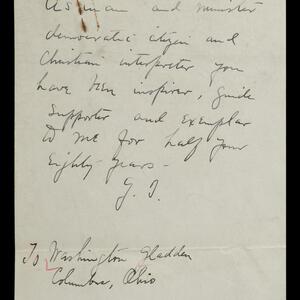 As man and minister
democratic citizen and
Christian interpreter you
have been inspirer, guide
supporter and exemplar
to me for half your
Eighty years -
G. T.
To Washington Gladden
Columbus, Ohio